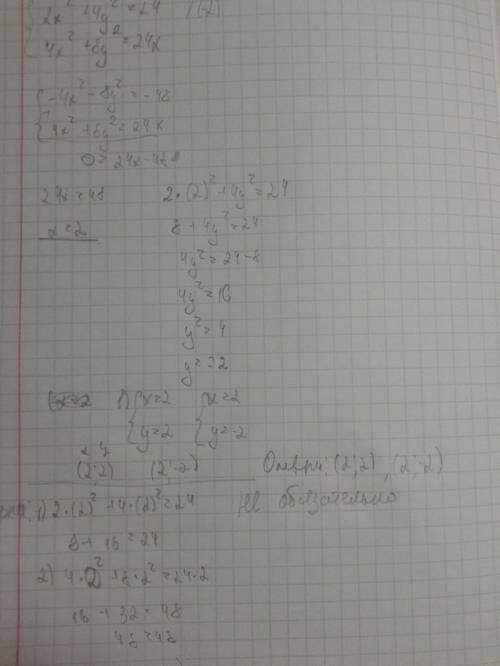 2x² + 4y² = 24 /(-2)
4x² + 8y² = 24x
-4x² - 8y² = -48
4x² + 8y² = 24x
0 = 24x - 48
24x = 48
x = 2
2·(2)² + 4y² = 24
8 + 4y² = 24
4y² = 24 - 8
4y² = 16
y² = 4
y = 2
x = 2 x = 2
y = 2 y = -2
x y
(2; 2) (2; -2) Ответ: (2; 2), (2; -2)
1) 2·(2)² + 4·(2)² = 24 не обязательно
8 + 16 = 24
2) 4·2² + 8·2² = 24·2
16 + 32 = 48
48 = 48